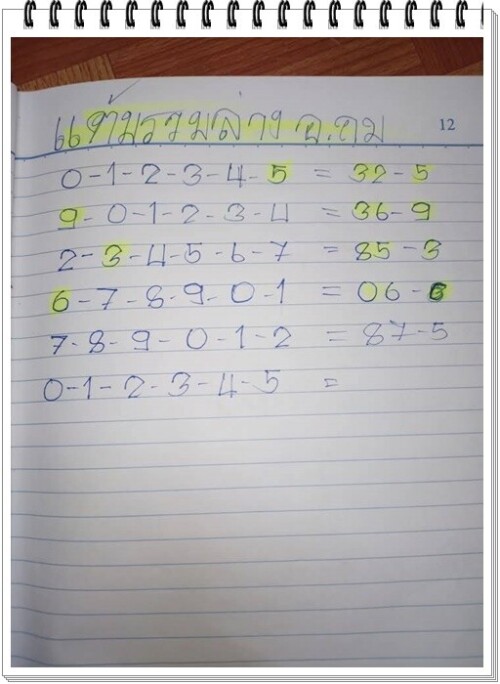 แต้มรวมล่าง อ.ถม
12
0-1-2-3-4-5 = 32-5
9-0-1-2-3-4 = 36-9
2-3-4-5-6-7 = 85-3
6-7-8-9-0-1 = 06-6
7-8-9-0-1-2 = 87-5
0-1-2-3-4-5 =